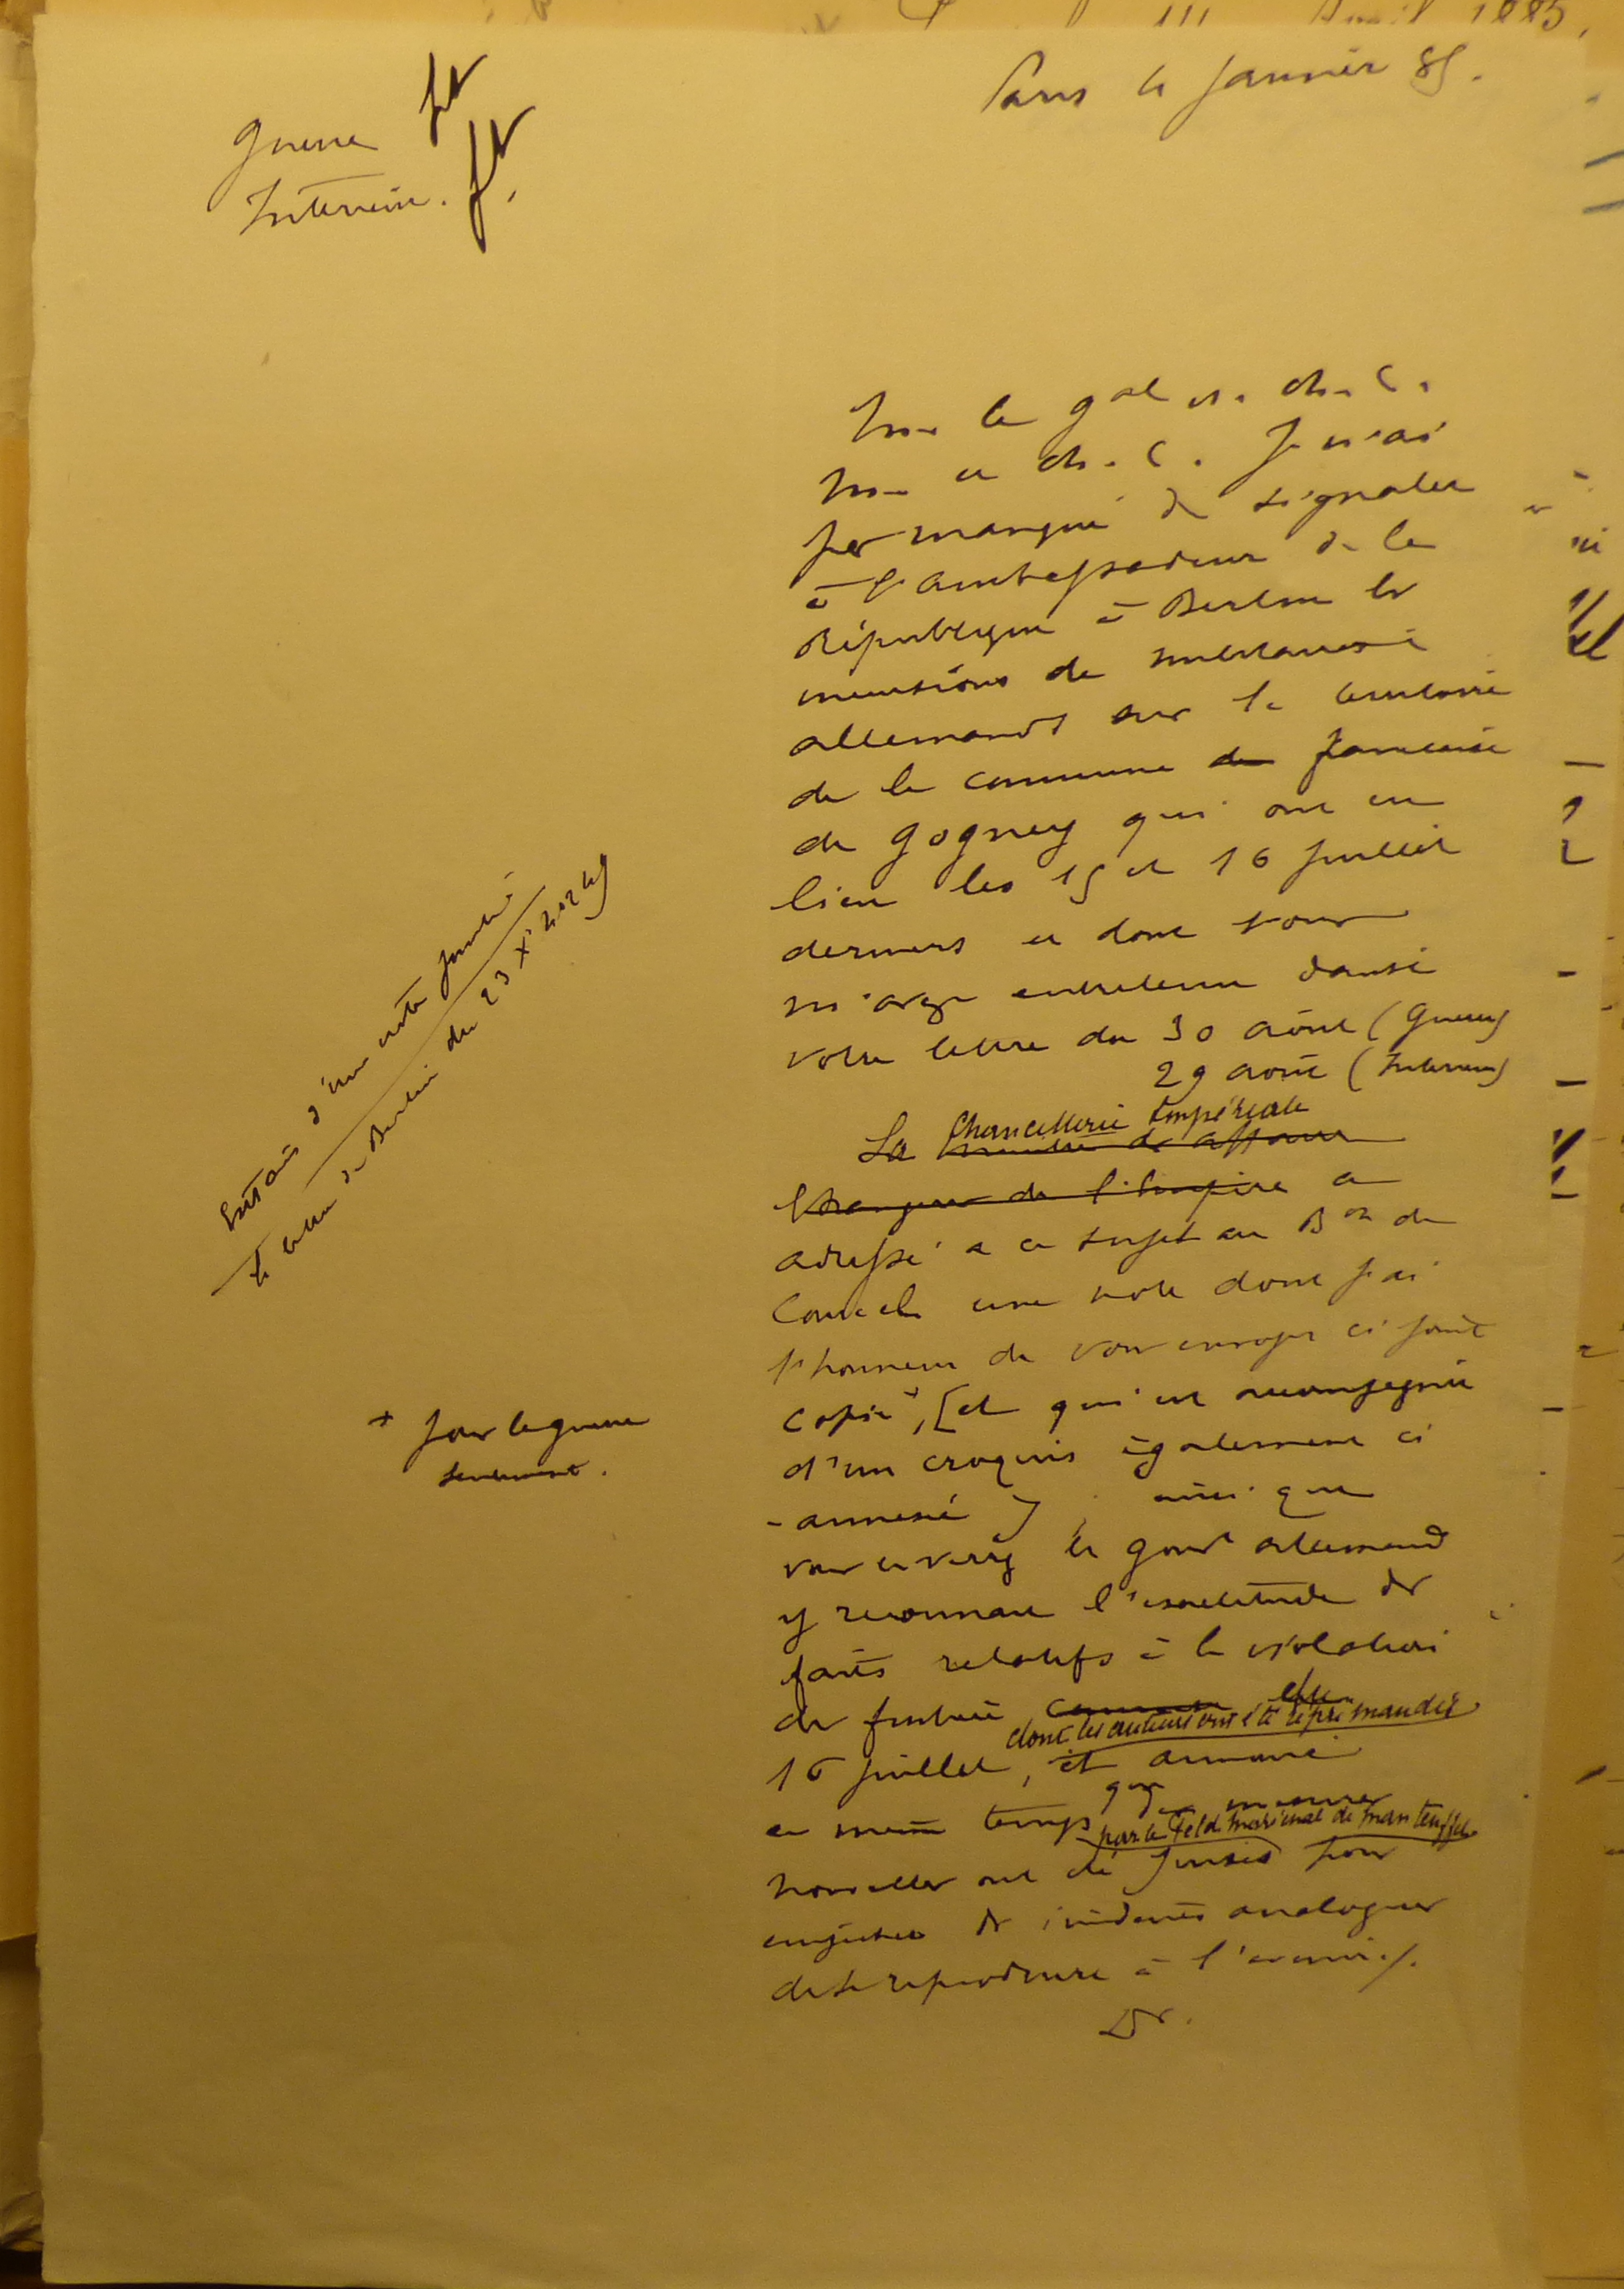 Avril 1885,
Paris le Janvier 85.
Guerre ft
Intérieur. ft
M. le gal et ch. C.
M. et ch. C. Je n'ai
pas manqué de signaler
à l'ambassadeur de la
République à Berlin les
incursions de militaires
allemands sur le territoire
de la commune de française
de Gogney qui ont eu
lieu les 15 et 16 Juillet
derniers et dont vous
m'avez entretenu dans
votre lettre du 30 août (Guerre)
29 août (Intérieur)
Chancellerie Impériale
La ministre des affaires
étrangères de l'Empire a
adressé à ce sujet au Bon de
Courcel une note dont j'ai
l'honneur de vous envoyer ci joint
copie +, [et qui est accompagnée
d'un croquis également ci
-annexé], ainsi que
vous le verrez le gouvt allemand
y reconnait l'exactitude des
faits relatifs à la violation
de frontière commise du
dont les auteurs ont été réprimandés
16 juillet, et annonce
en même temps que des mesures
par le Feld Maréchal de Manteuffel
nouvelles ont été prises pour
empêcher des incidents analogues
de se reproduire à l'avenir./.
Dr.
Extrait d'une note jointe à
la lettre de Berlin du 23 Xe
+ pour la guerre
seulement.